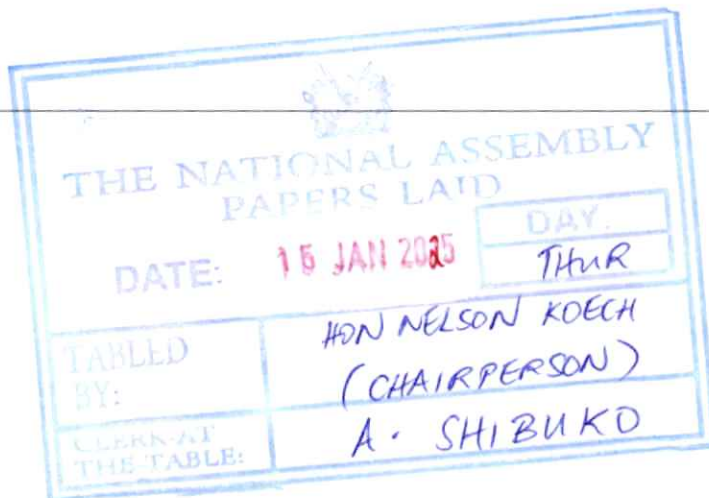 THE NATIONAL ASSEMBLY
PAPERS LAID
DATE: 16 JAN 2025
DAY.
THUR
TABLED
BY:
HON NELSON KOECH
(CHAIRPERSON)
CLERK-AT
THE-TABLE:
A. SHIBUKO